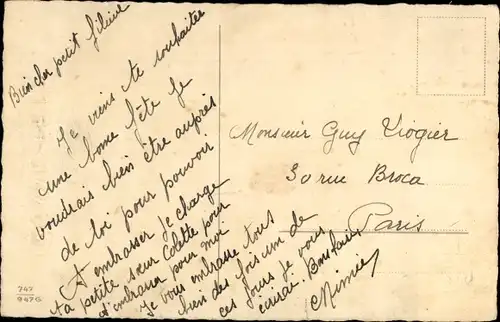 Bien cher petit filleul
Je viens te souhaiter
une bonne fête Je
voudrais bien être auprès
de toi pour pouvoir
t embrasser Je charge
ta petite sœur Colette pour
t'embrasser pour moi
Je vous embrasse tous
bien des fois un de
ces jours je vous
écrirai. Bons baisers
Mimie
Monsieur Guy Viogier
30 rue Broca
Paris
747
947 G